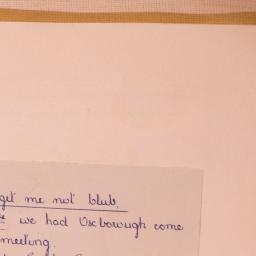 get me not blub.
we had Oxborough come
meeting.